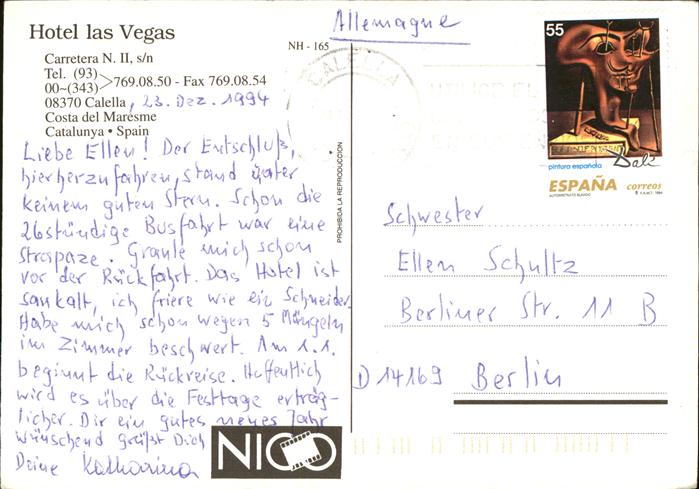 Hotel las Vegas
Carretera N. II, s/n
Tel. (93)
00~(343) >769.08.50 - Fax 769.08.54
08370 Calella, 23. Dez. 1994
Costa del Maresme
Catalunya • Spain
NH - 165
Liebe Ellen! Der Entschluß,
hierherzufahren, stand unter
keinem guten Stern. Schon die
26stündige Busfahrt war eine
Strapaze. Graule mich schon
vor der Rückfahrt. Das Hotel ist
saukalt, ich friere wie ein Schneider.
Habe mich schon wegen 5 Mängeln
im Zimmer beschwert. Am 1.1.
beginnt die Rückreise. Hoffentlich
wird es über die Festtage erträg-
licher. Dir ein gutes neues Jahr
wünschend grüßt Dich
Deine Katharina
NICO
PROHIBIDA LA REPRODUCCION
Allemagne
CALELLA
55
pintura española
Dalí
ESPAÑA correos
AUTORRETRATO BLANDO
F.N.M.T. 1994
Schwester
Ellen Schultz
Berliner Str. 11 B
D 14169 Berlin